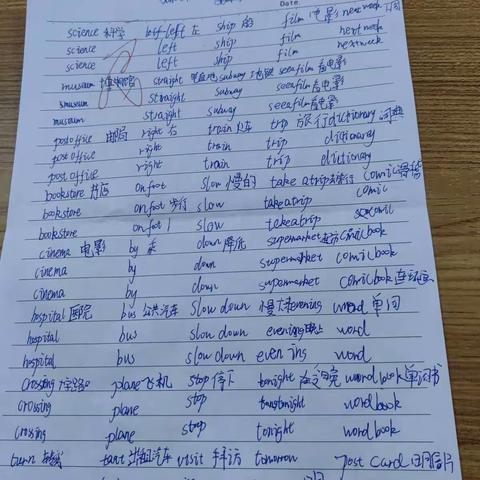 Date
science 科学 left 左 ship film 电影 next week
science left ship film next week
science left ship film nextweek
museum straight subway 地铁 seeafilm 看电影
smuseum straight subway seeafilm 看电影
museum straight subway seeafilm 看电影
postoffice 邮局 right 右 train 火车 trip 旅行 dictionary 词典
post office right train trip dictionary
post office right train trip dictionary
bookstore 书店 onfoot slow 慢的 take atrip comic
bookstore onfoot 步行 slow takeatrip comic
bookstore onfoot slow tekeatrip
cinema 电影 by 乘 down 降低 supermarket comicbook
cinema by down supermarket comicbook
cinema by down supermarket comicbook
hospital 医院 bus 公共汽车 slow down evening word 单词
hospital bus slow down evening 晚上 word
hospital bus slow down evening word
crossing plane 飞机 stop 停下 tonight word book 单词书
crossing plane stop wordbook
crossing plane stop tonight wordbook
turn visit 拜访 tomorrow post card 明信片